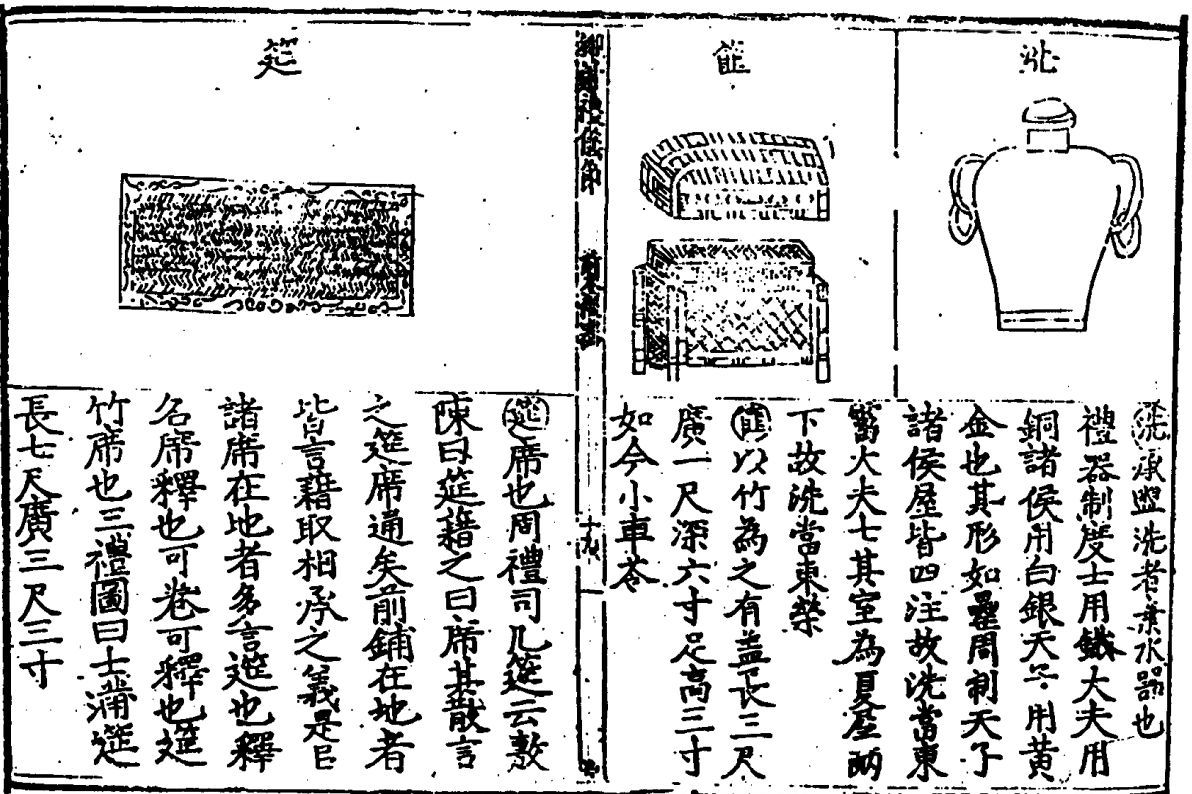 洗
洗承盥洗者棄水器也
禮器制度士用鐵大夫用
銅諸侯用白銀天子用黃
金也其形如罍周制天子
諸侯屋皆四注故洗當東
霤大夫七其室為夏屋兩
下故洗當東榮
篚
篚以竹為之有盖長三尺
廣一尺深六寸足高三寸
如今小車笭
十九
筵
筵席也周禮司几筵云敷
陳曰筵藉之曰席其散言
之筵席通矣前鋪在地者
皆言藉取相承之義是曰
諸席在地者多言筵也釋
名席釋也可卷可釋也筵
竹席也三禮圖曰士蒲筵
長七尺廣三尺三寸